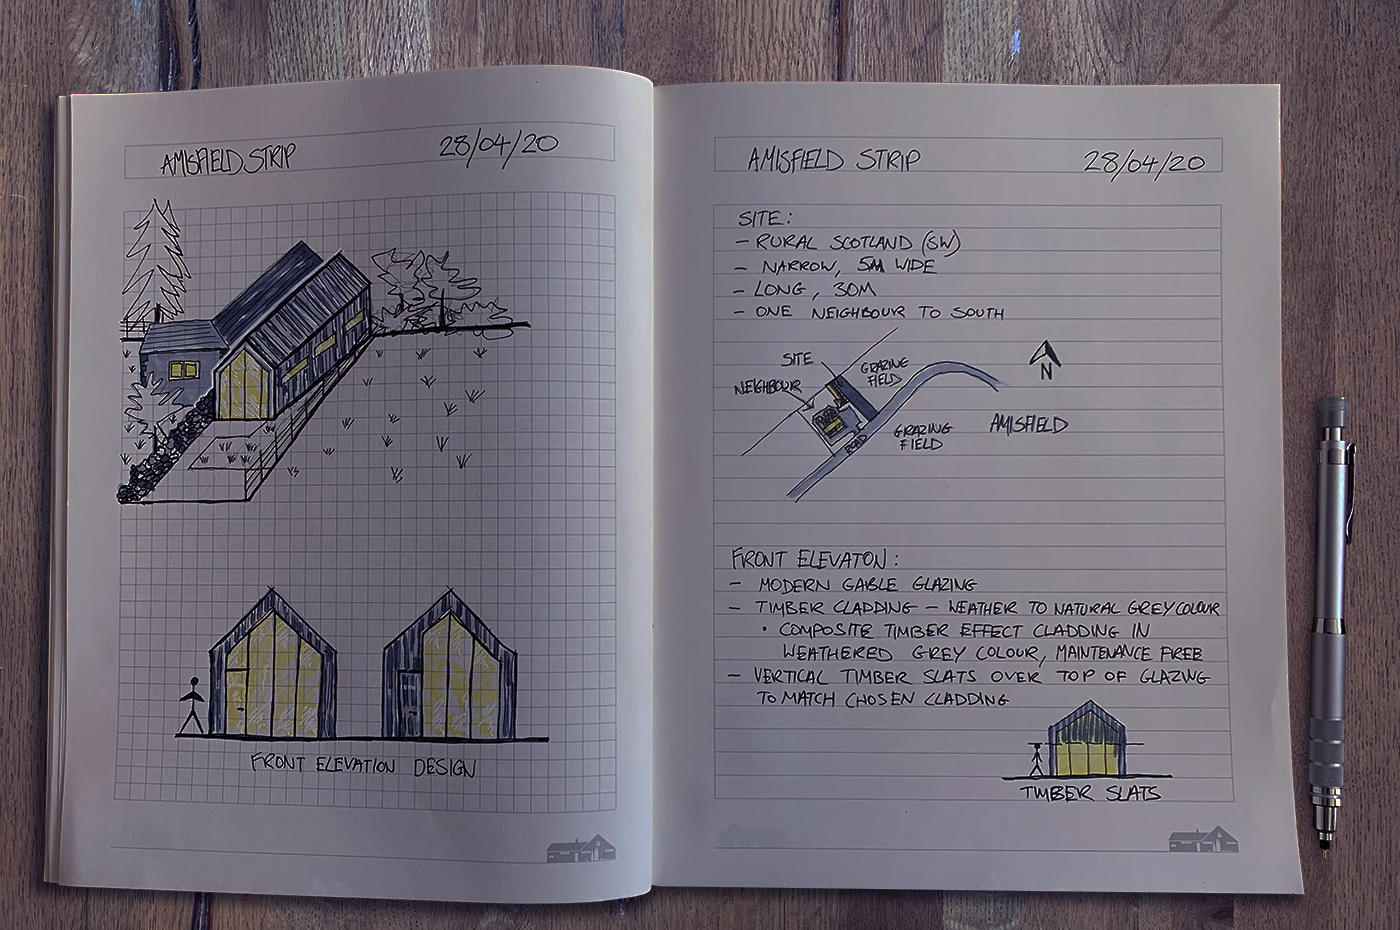 AMISFIELD STRIP
28/04/20
FRONT ELEVATION DESIGN
AMISFIELD STRIP
28/04/20
SITE:
- RURAL SCOTLAND (SW)
- NARROW, 5M WIDE
- LONG, 30M
- ONE NEIGHBOUR TO SOUTH
SITE
NEIGHBOUR
GRAZING
FIELD
N
GRAZING
FIELD
AMISFIELD
ROAD
FRONT ELEVATON:
- MODERN GABLE GLAZING
- TIMBER CLADDING - WEATHER TO NATURAL GREY COLOUR
• COMPOSITE TIMBER EFFECT CLADDING IN
WEATHERED GREY COLOUR, MAINTENANCE FREE
- VERTICAL TIMBER SLATS OVER TOP OF GLAZING
TO MATCH CHOSEN CLADDING
TIMBER SLATS